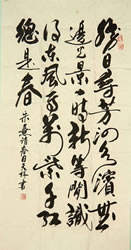 勝日尋芳泗水濱無
邊光景一時新等閑識
得東風面萬紫千紅
總是春
朱熹詩春日
書